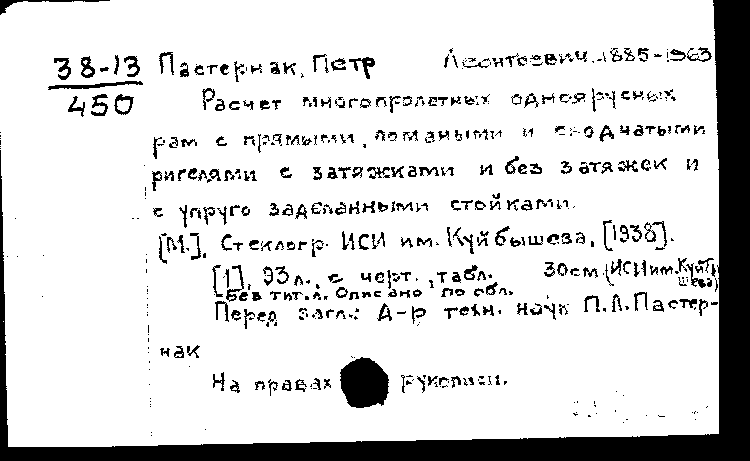 38-13 Пастернак, Петр Леонтьевич. 1885-1963
450
Расчет многопролетных одноярусных
рам с прямыми, ломаными и сводчатыми
ригелями с затяжками и без затяжек и
с упруго заделанными стойками.
[М.], Стеклогр. ИСИ им. Куйбышева, [1938].
[1], 93 л., с черт., табл. 30см (ИСИ им. Куйбы
шева)
-Без тит. л. Описано по обл.
Перед загл.: Д-р техн. наук П.Л.Пастер-
нак
На правах рукописи.